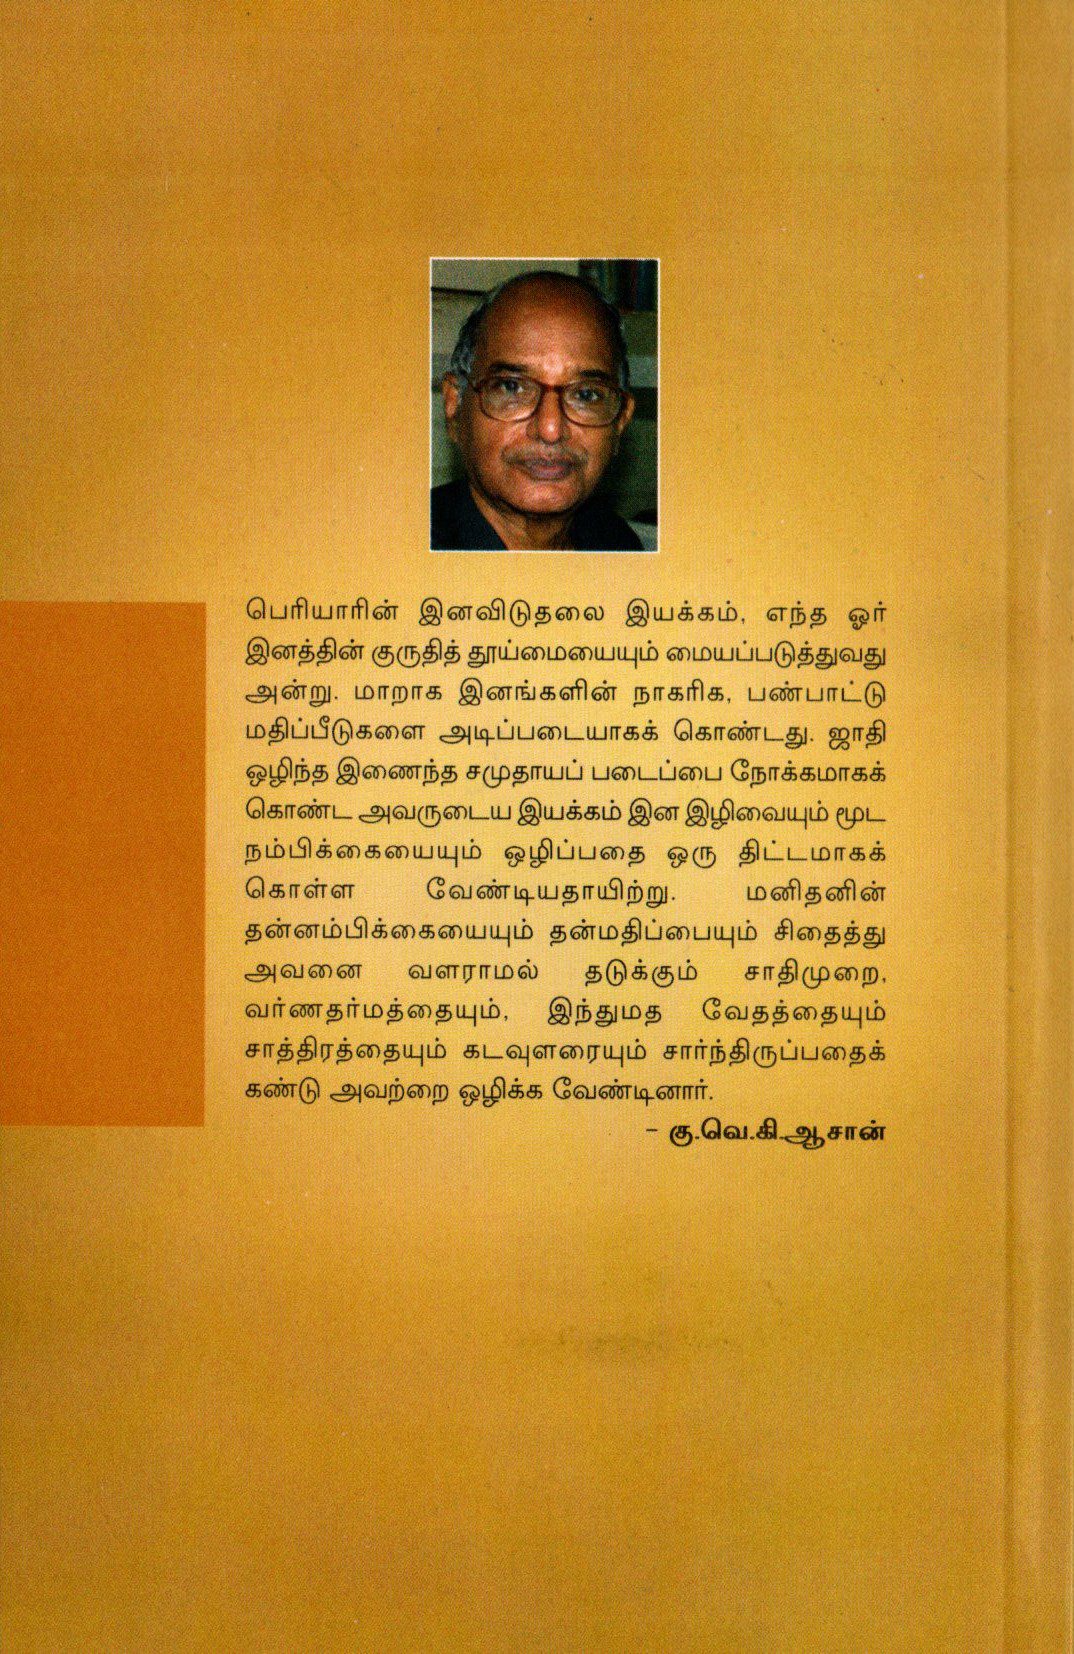 பெரியாரின் இனவிடுதலை இயக்கம், எந்த ஓர்
இனத்தின் குருதித் தூய்மையையும் மையப்படுத்துவது
அன்று. மாறாக இனங்களின் நாகரிக, பண்பாட்டு
மதிப்பீடுகளை அடிப்படையாகக் கொண்டது. ஜாதி
ஒழிந்த இணைந்த சமுதாயப் படைப்பை நோக்கமாகக்
கொண்ட அவருடைய இயக்கம் இன இழிவையும் மூட
நம்பிக்கையையும் ஒழிப்பதை ஒரு திட்டமாகக்
கொள்ள வேண்டியதாயிற்று. மனிதனின்
தன்னம்பிக்கையையும் தன்மதிப்பையும் சிதைத்து
அவனை வளராமல் தடுக்கும் சாதிமுறை,
வர்ணதர்மத்தையும், இந்துமத வேதத்தையும்
சாத்திரத்தையும் கடவுளரையும் சார்ந்திருப்பதைக்
கண்டு அவற்றை ஒழிக்க வேண்டினார்.
– கு.வெ.கி.ஆசான்